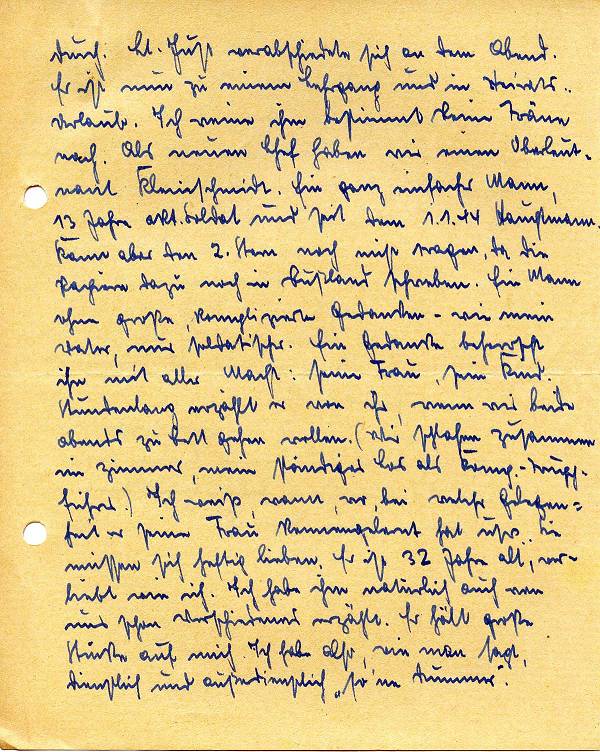 durch. Lt. Just verabschiedete sich an dem Abend.
Er ist nun zu einem Lehrgang und in Heirats-
Urlaub. Ich weine ihm bestimmt keine Träne
nach. Als neuen Chef haben wir einen Oberleut-
nant Kleinschmidt. Ein ganz einfacher Mann,
13 Jahre akt. Soldat und seit dem 1.1.44 Hauptmann.
Kann aber den 2. Stern noch nicht tragen, da die
Papiere dazu noch in Rußland schweben. Ein Mann
ohne große, komplizierte Gedanken - wie mein
Vater, nur soldatischer. Ein Gedanke beherrscht
ihn mit aller Macht: seine Frau, sein Kind.
Stundenlang erzählt er von ihr, wenn wir beide
abends zu Bett gehen wollen. (Wir schlafen zusammen
im Zimmer, mein ständiges Los als Komp.-Trupp-
führer.) Ich weiß, wann, wo, bei welcher Gelegen=
heit er seine Frau kennengelernt hat usw. Sie
müssen sich heftig lieben. Er ist 32 Jahre alt, ver-
liebt wie ich. Ich habe ihm natürlich auch von
uns schon Verschiedenes erzählt. Er hält große
Stücke auf mich. Ich habe also, wie man sagt,
dienstlich und außerdienstlich „so 'ne Nummer".